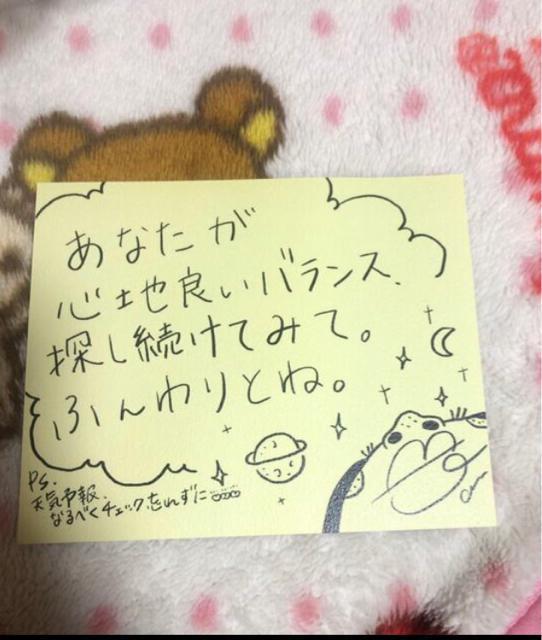 あなたが
心地良いバランス、
探し続けてみて。
ふんわりとね。
PS.
天気予報、
なるべくチェック忘れずに